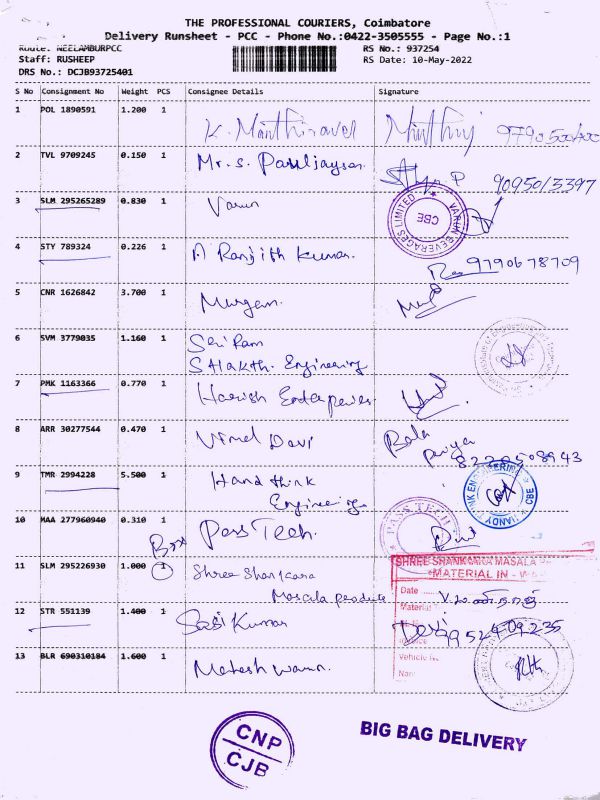 THE PROFESSIONAL COURIERS, Coimbatore
Delivery Runsheet - PCC - Phone No.:0422-3505555 - Page No.:1
Route: NEELAMBURPCC
RS No.: 937254
Staff: RUSHEEP
RS Date: 10-May-2022
DRS No.: DCJB93725401
S No Consignment No Weight PCS Consignee Details Signature
1 POL 1890591 1.200 1 K. Manthiravel
2 TVL 9709245 0.150 1 Mr. S. 9095013397
3 SLM 295265289 0.830 1 Varun
VARUN BEVERAGES LIMITED CBE
4 STY 789324 0.226 1 A Ranjith Kumar. 9790678709
5 CNR 1626842 3.700 1 Murgan.
6 SVM 3779035 1.160 1 Sri Ram
Engineering
7 PMK 1163366 0.770 1 Harish Enterprises
8 ARR 30277544 0.470 1 Vimal Devi Bala
priya
8220508943
9 TMR 2994228 5.500 1 Hand think
Engineering
CBE
10 MAA 277960940 0.310 1 Pass Tech.
PASS TECH
11 SLM 295226930 1.000 1 Shree Shankara
Masala products
SHREE SHANKARA MASALA
MATERIAL IN
Date
Material
Vehicle No
Nam
12 STR 551139 1.400 1 Sasi Kumar 9952409235
13 BLR 690310184 1.600 1 Maheshwaran.
CNP
CJB
BIG BAG DELIVERY